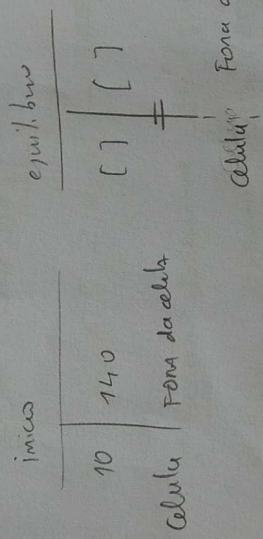 início
10 | 140
celula | Fora da celula
equilíbrio
[ ] | [ ]
celula | Fora d